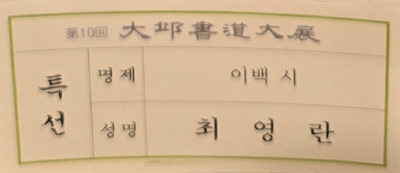 第10回 大邱書道大展
특선
명제 이백 시
성명 최영란